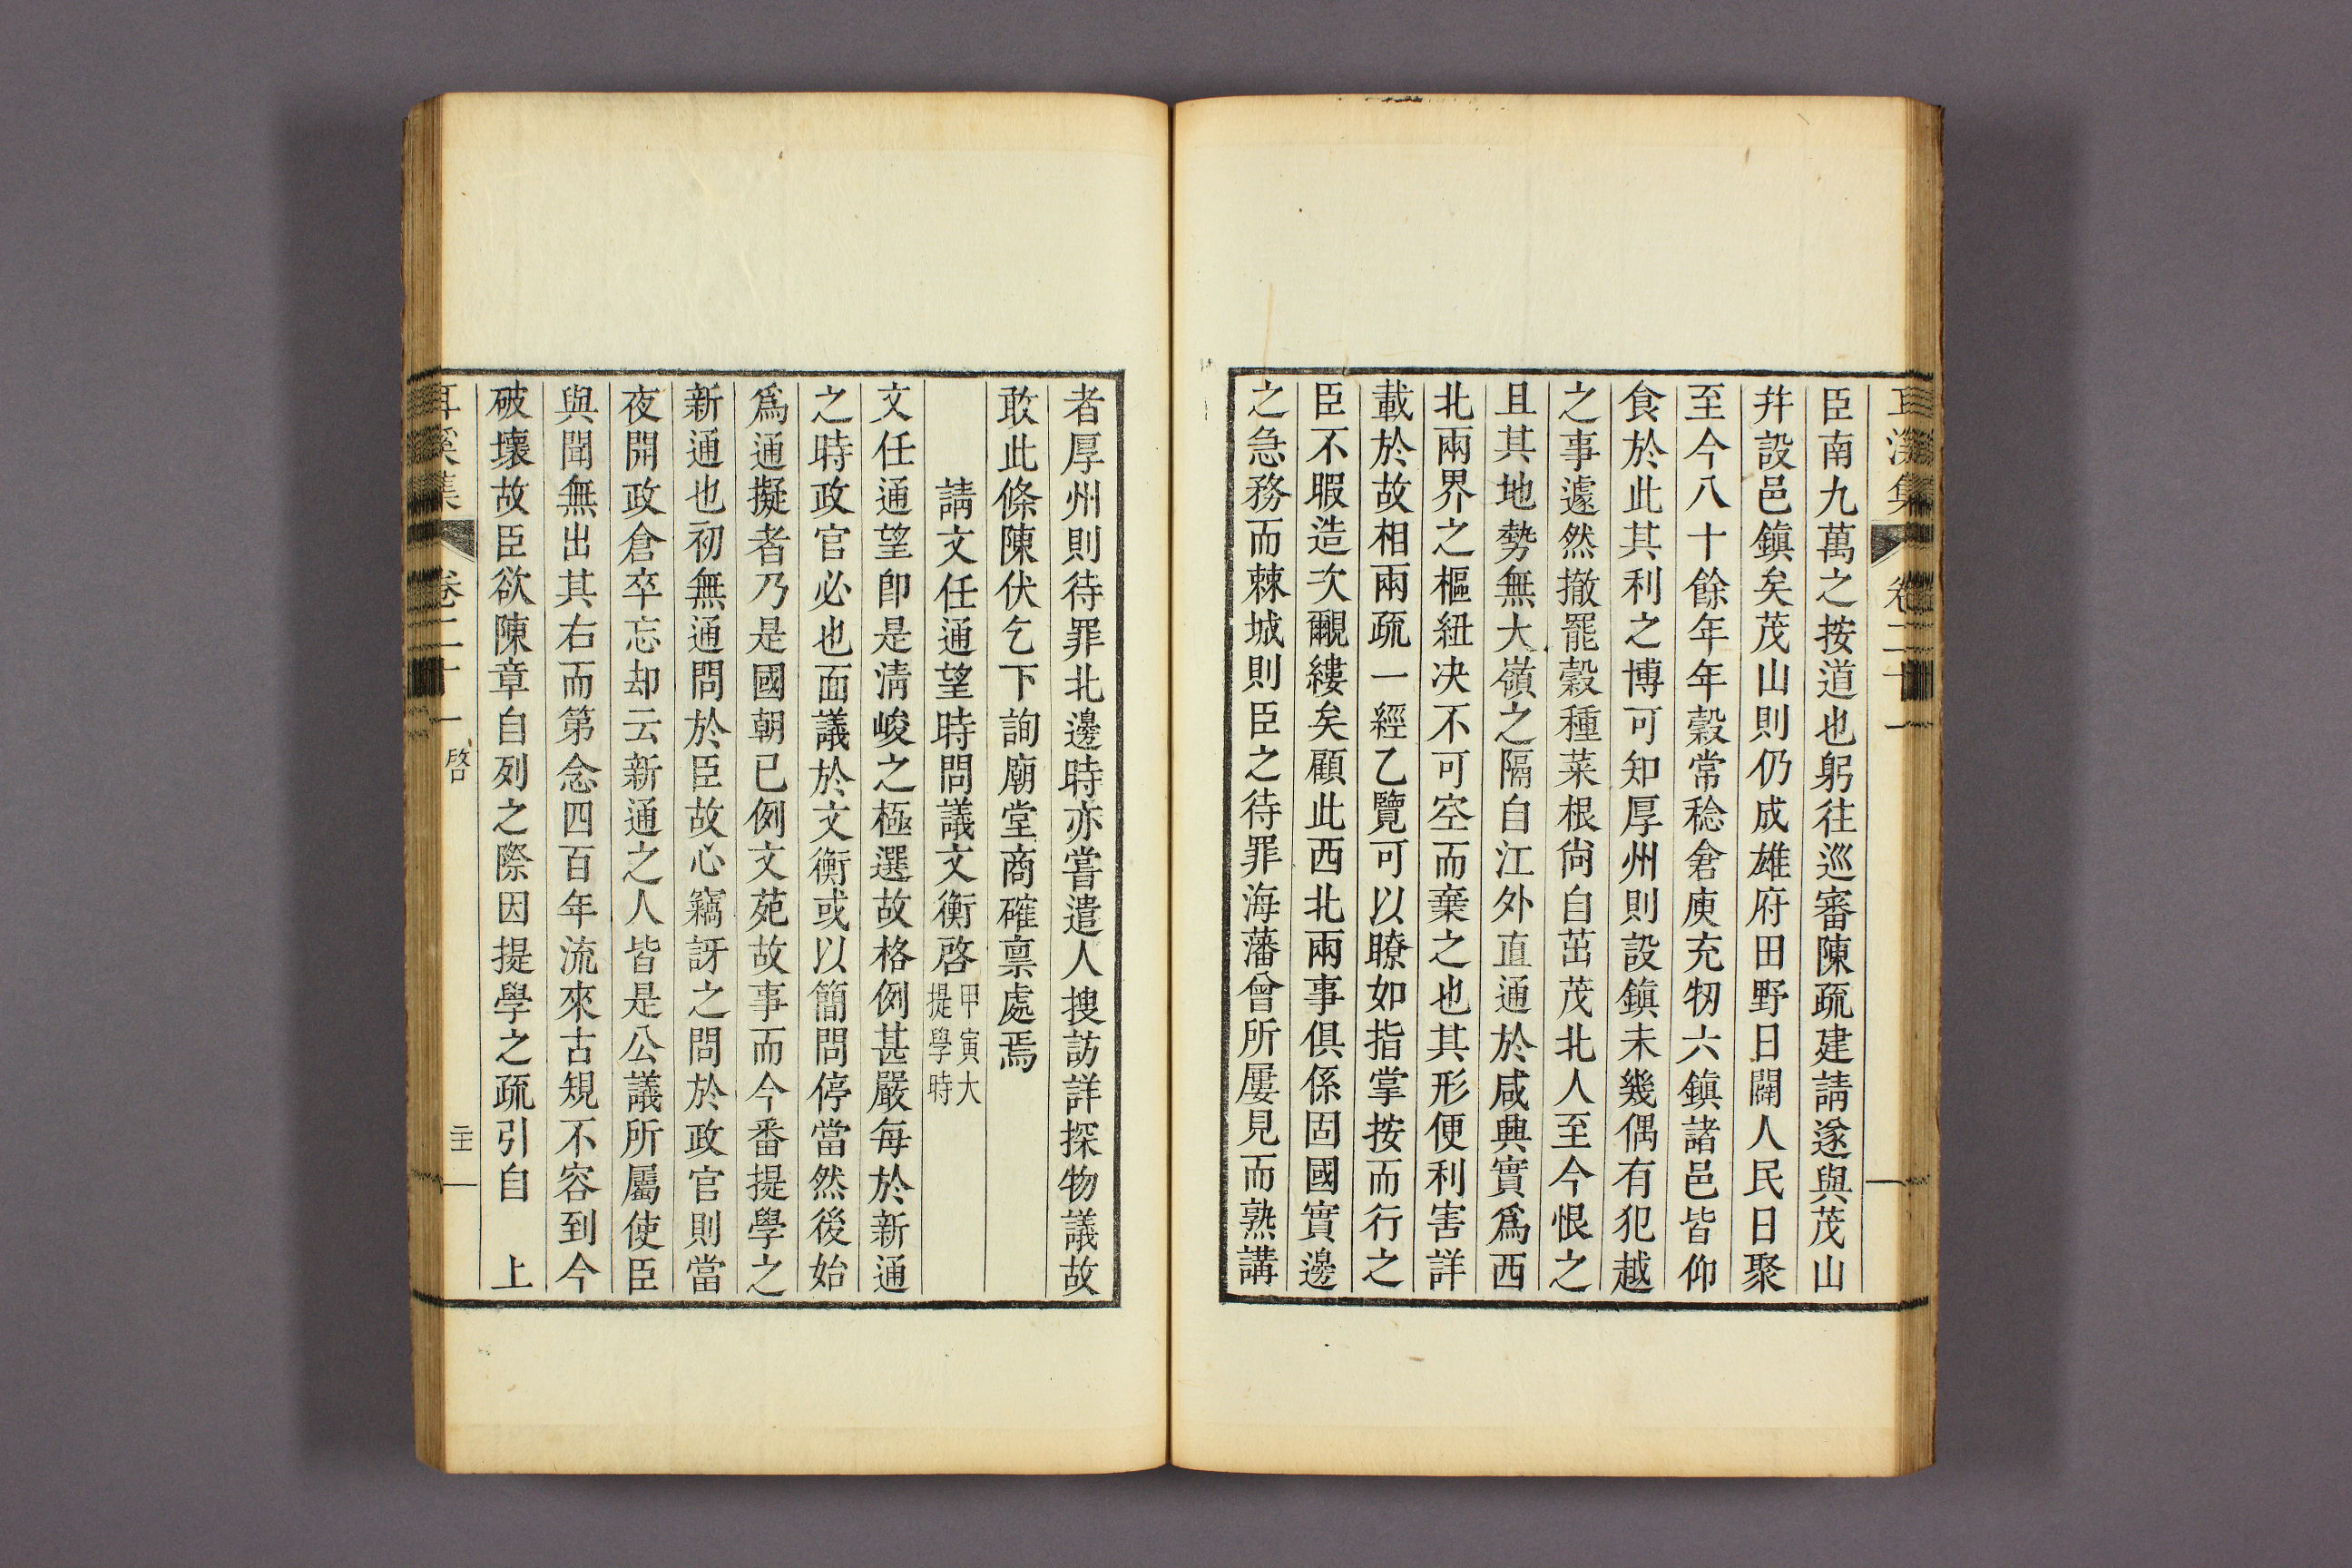 耳溪集 卷二十一
臣南九萬之按道也躬往巡審陳疏建請遂與茂山
幷設邑鎭矣茂山則仍成雄府田野日闢人民日聚
至今八十餘年年穀常稔倉庾充牣六鎭諸邑皆仰
食於此其利之博可知厚州則設鎭未幾偶有犯越
之事遽然撤罷穀種菜根尙自茁茂北人至今恨之
且其地勢無大嶺之隔自江外直通於咸興實爲西
北兩界之樞紐决不可空而棄之也其形便利害詳
載於故相兩疏一經乙覽可以瞭如指掌按而行之
臣不暇造次覼縷矣顧此西北兩事俱係固國實邊
之急務而棘城則臣之待罪海藩曾所屢見而熟講
者厚州則待罪北邊時亦嘗遣人搜訪詳探物議故
敢此條陳伏乞下詢廟堂商確禀處焉
請文任通望時問議文衡啓甲寅大
提學時
文任通望卽是淸峻之極選故格例甚嚴每於新通
之時政官必也面議於文衡或以簡問停當然後始
爲通擬者乃是國朝已例文苑故事而今番提學之
新通也初無通問於臣故心竊訝之問於政官則當
夜開政倉卒忘却云新通之人皆是公議所屬使臣
與聞無出其右而第念四百年流來古規不容到今
破壞故臣欲陳章自列之際因提學之疏引自　上
耳溪集 卷二十一 啓